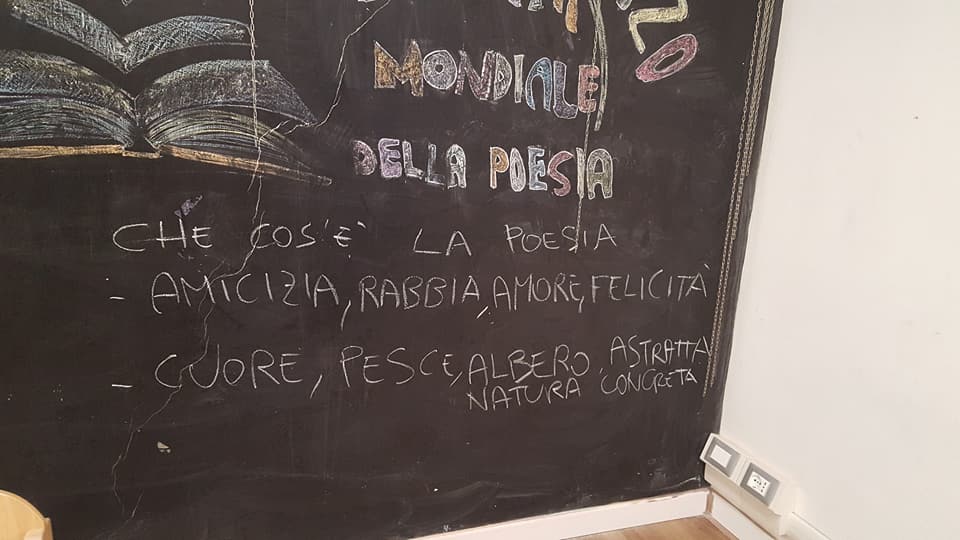 MONDIALE
DELLA POESIA
CHE COS'È LA POESIA
- AMICIZIA, RABBIA, AMORE, FELICITÀ
- CUORE, PESCE, ALBERO, ASTRATTA
NATURA CONCRETA